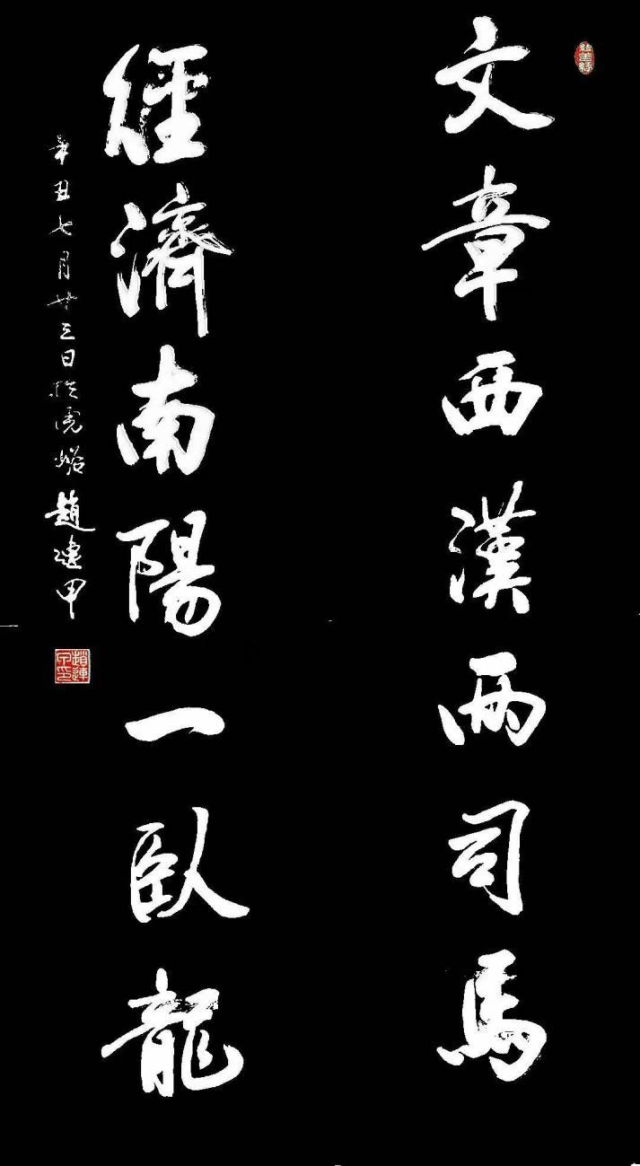 文章西漢兩司馬
經濟南陽一臥龍
辛丑七月廿三日於虎峪趙連甲
趙連甲印